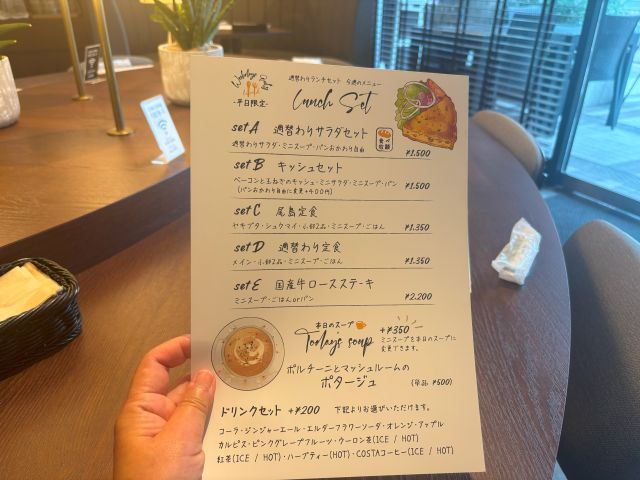 週替わりランチセット 今週のメニュー
Weekdays
Lunch Set
-平日限定-
set A 週替わりサラダセット
食べ放題
週替わりサラダ・ミニスープ・パンおかわり自由 ¥1.500
set B キッシュセット
ベーコンと玉ねぎのキッシュ・ミニサラダ・ミニスープ・パン ¥1.500
(パンおかわり自由に変更+400円)
set C 尾島定食
ヤキブタ・シュウマイ・小鉢2品・ミニスープ・ごはん ¥1.350
set D 週替わり定食
メイン・小鉢2品・ミニスープ・ごはん ¥1.350
set E 国産牛ロースステーキ
ミニスープ・ごはんorパン ¥2.200
本日のスープ
Today's soup
+¥350
ミニスープを本日のスープに
変更できます。
ポルチーニとマッシュルームの
ポタージュ (単品 ¥500)
ドリンクセット +¥200 下記よりお選びいただけます。
コーラ・ジンジャーエール・エルダーフラワーソーダ・オレンジ・アップル
カルピス・ピンクグレープフルーツ・ウーロン茶(ICE / HOT)
紅茶(ICE / HOT)・ハーブティー(HOT)・COSTAコーヒー(ICE / HOT)